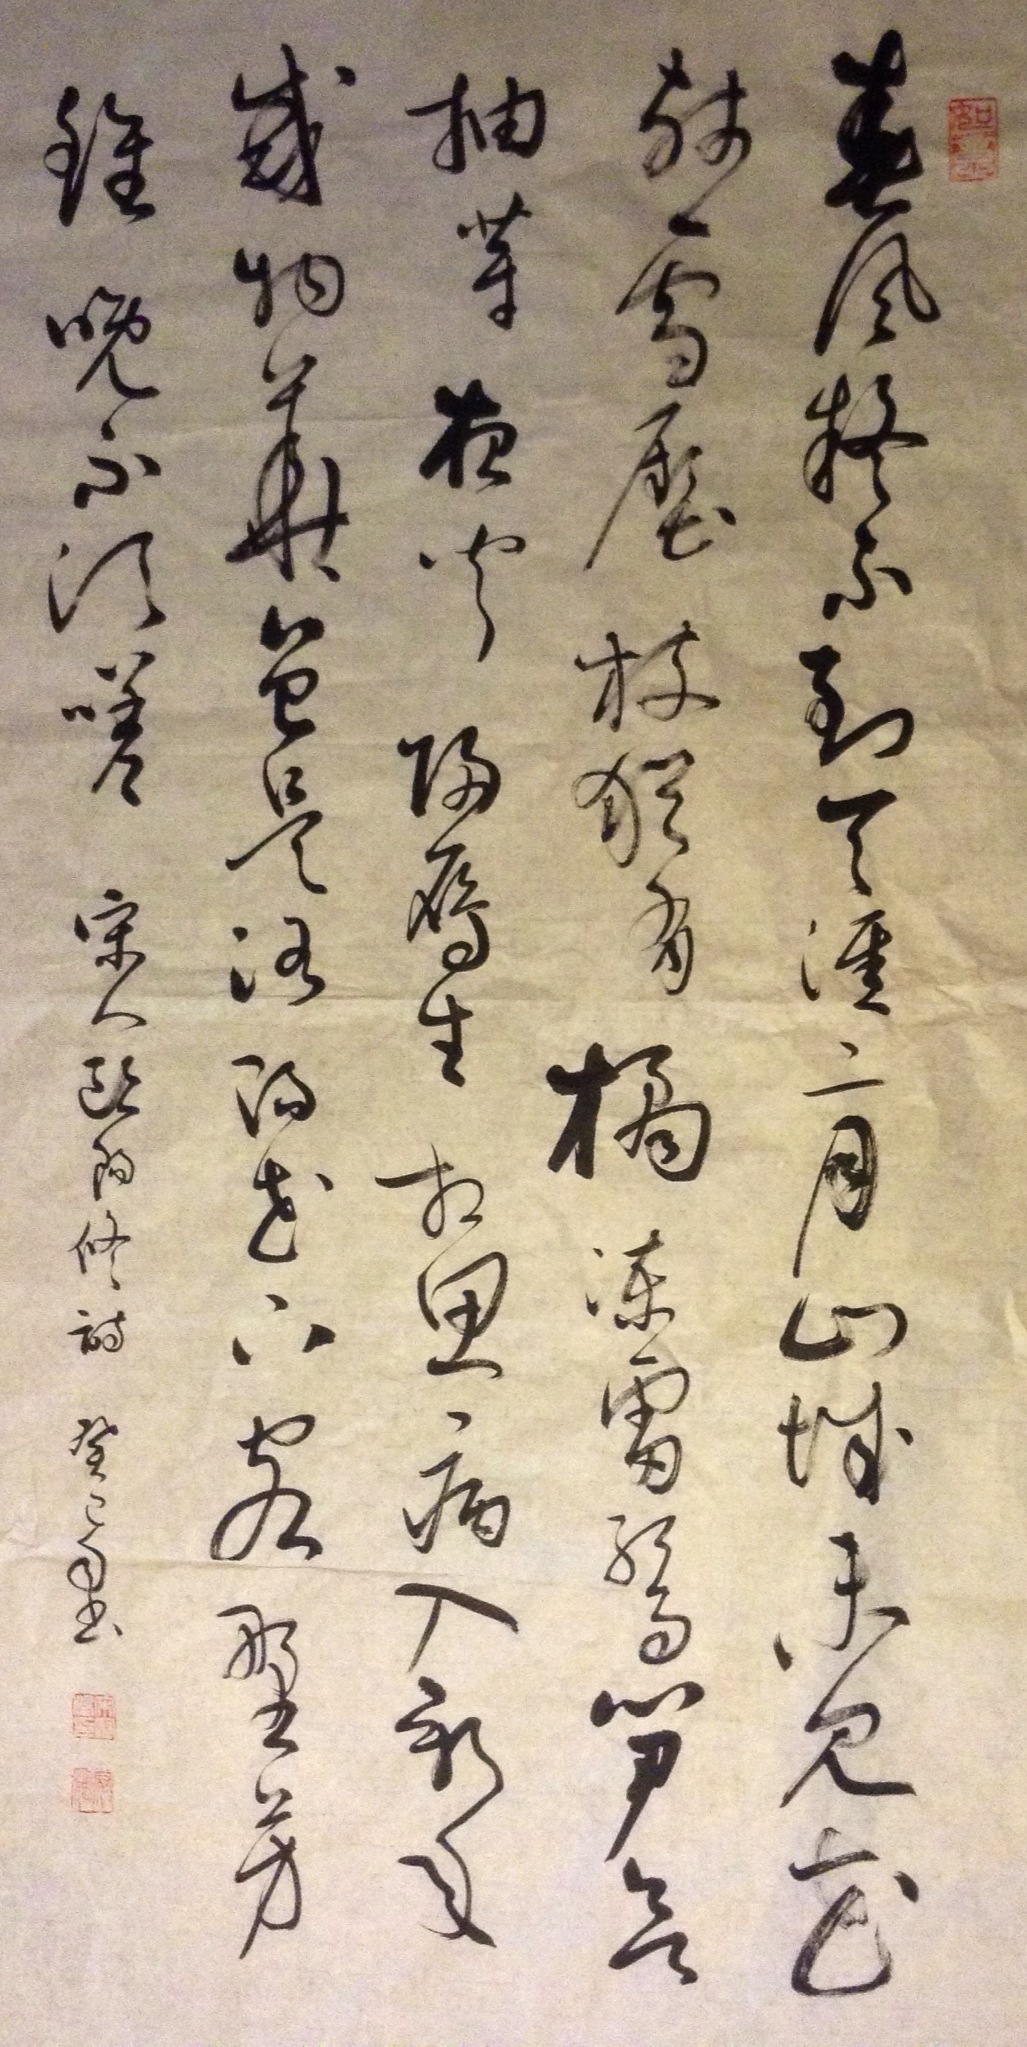 春風疑不到天涯二月山城未見花
殘雪壓枝猶有橘凍雷驚笋欲
抽芽夜聞歸鴈生相思病入新年
感物華曾是洛陽花下客野芳
雖晚不須嗟 宋人歐陽修詩 癸巳書